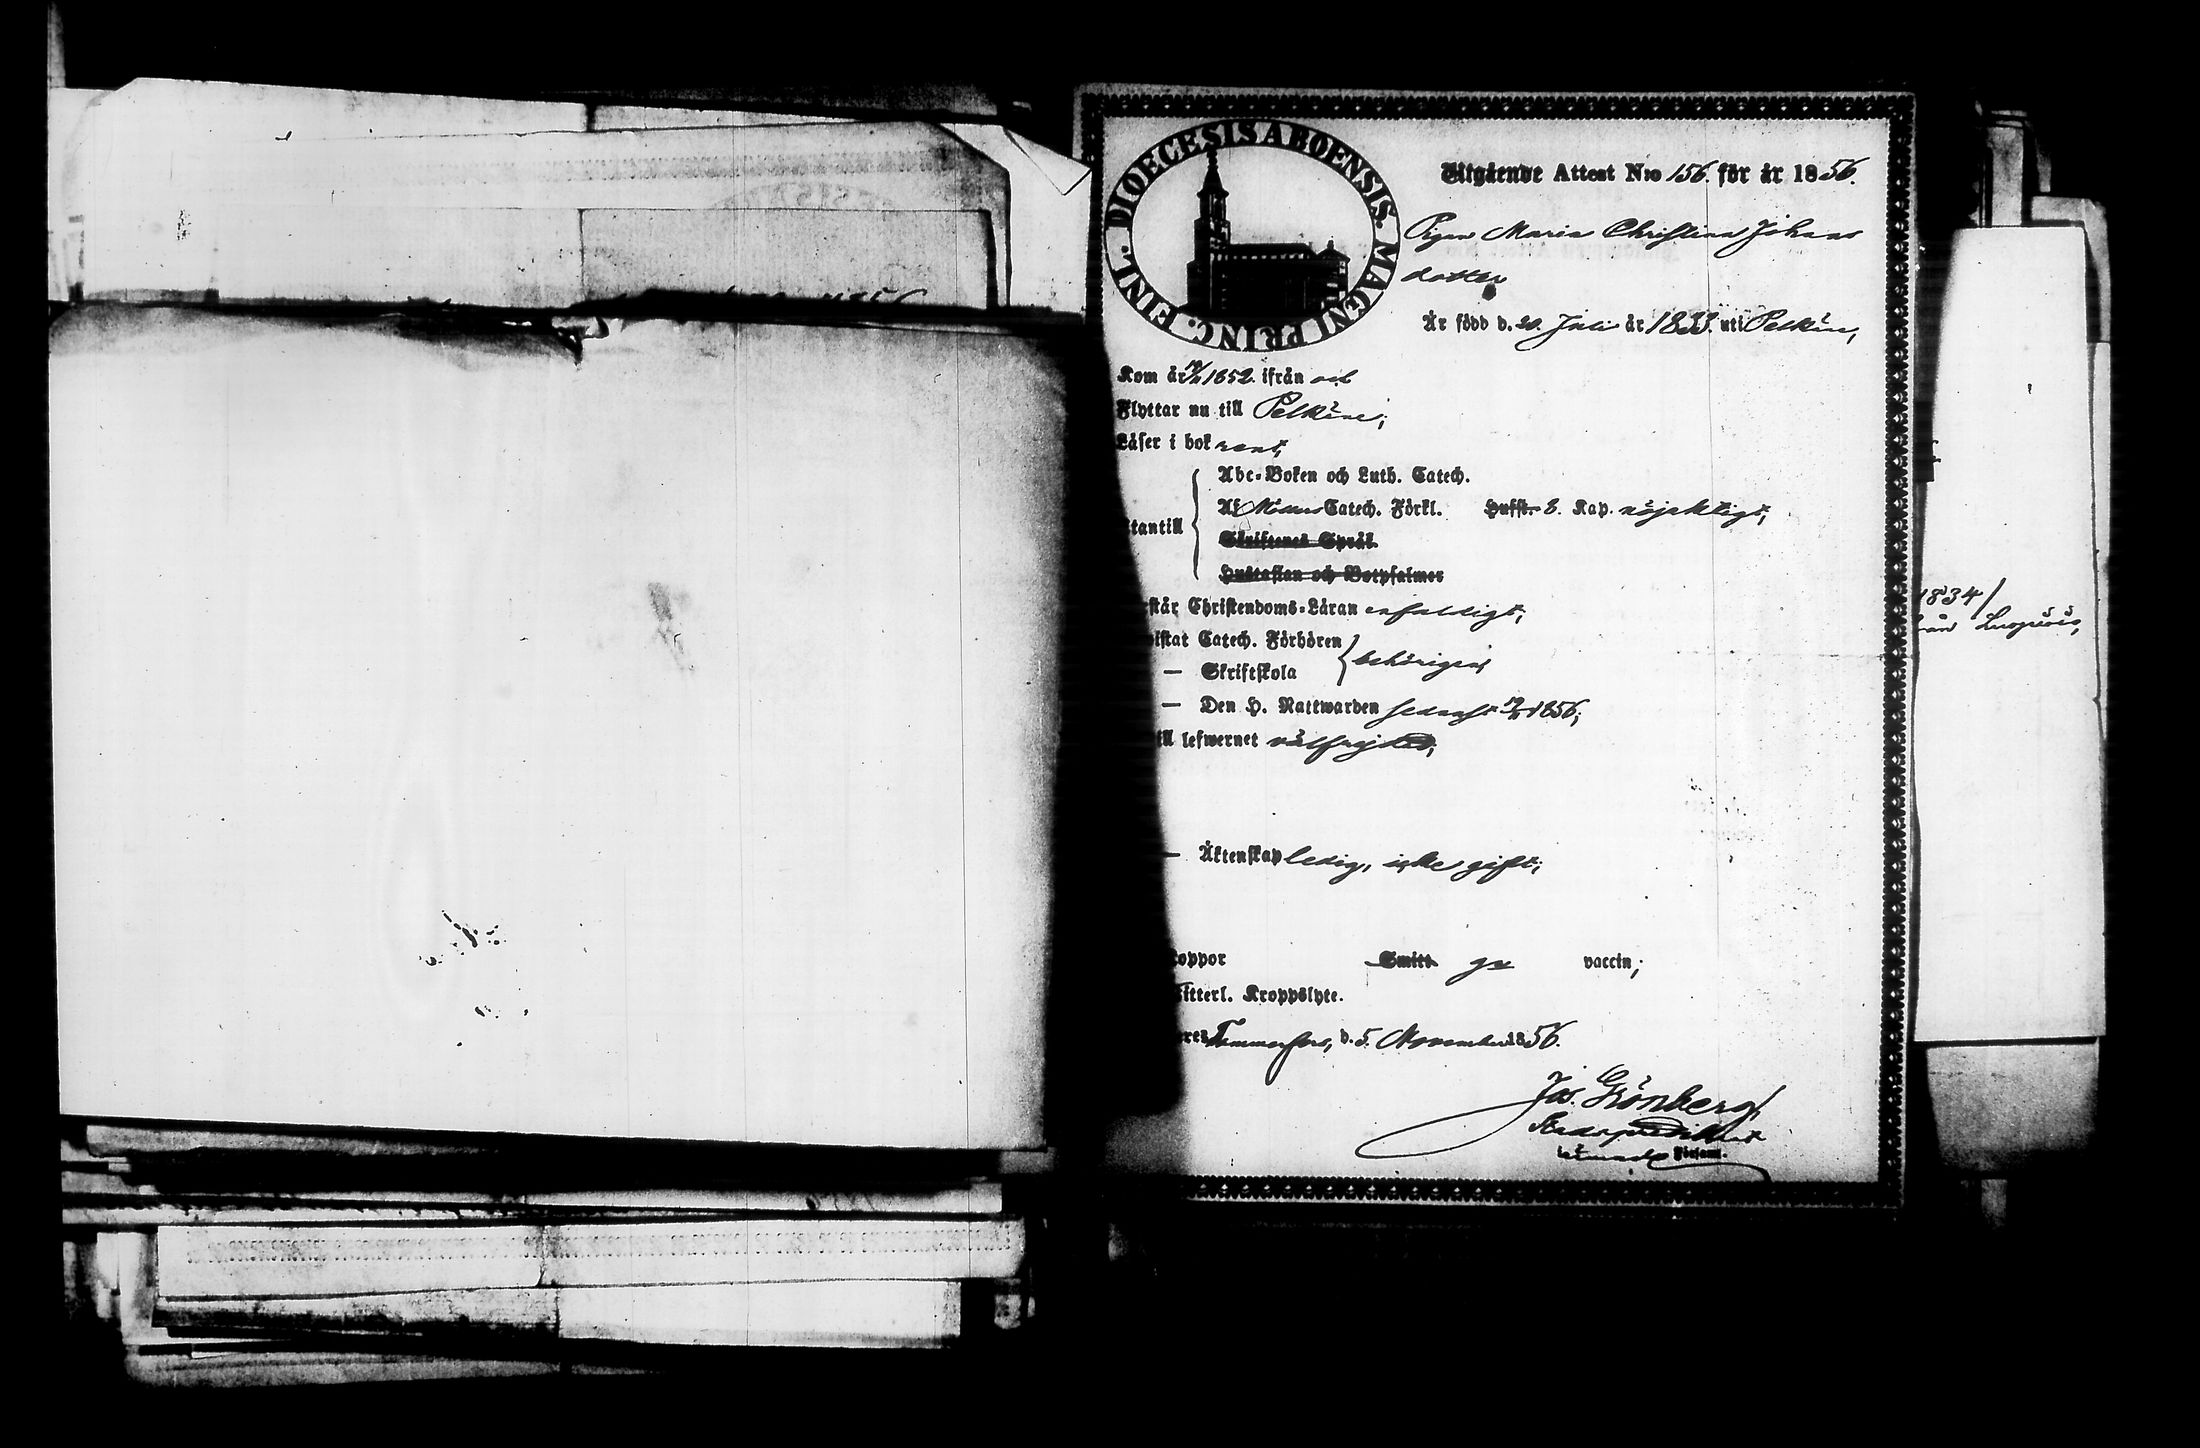 DIOECESIS ABOENSIS. MAGNI PRINC. FINL.
Utgående Attest N:o 156. för år 1856.
Pigan Maria Christina Johans
dotter
Är född d. 20. Juli år 1833. uti Pelkäne,
Kom år 1852. ifrån
Flyttar nu till Pelkäne;
Läser i bok rent,
Abc-Boken och Luth. Catech.
Utantill Af Möllers Catech. Förkl. Hufst. 6. Kap. nöjaktigt,
Skriftenes Språk
Hustaflan och Botpsalmer
står Christendoms-Läran enfaldigt,
wistat Catech. Förhören
— Skriftskola behörigen,
— Den H. Nattwarden sednast 1856;
till lefwernet välfrejdad,
— Äktenskap ledig, icke gift;
koppor Smitt ga vaccin;
Witterl. Kroppslyte.
Tammerfors, d. 5. November 1856.
Jos. Grönberg
1834/
från